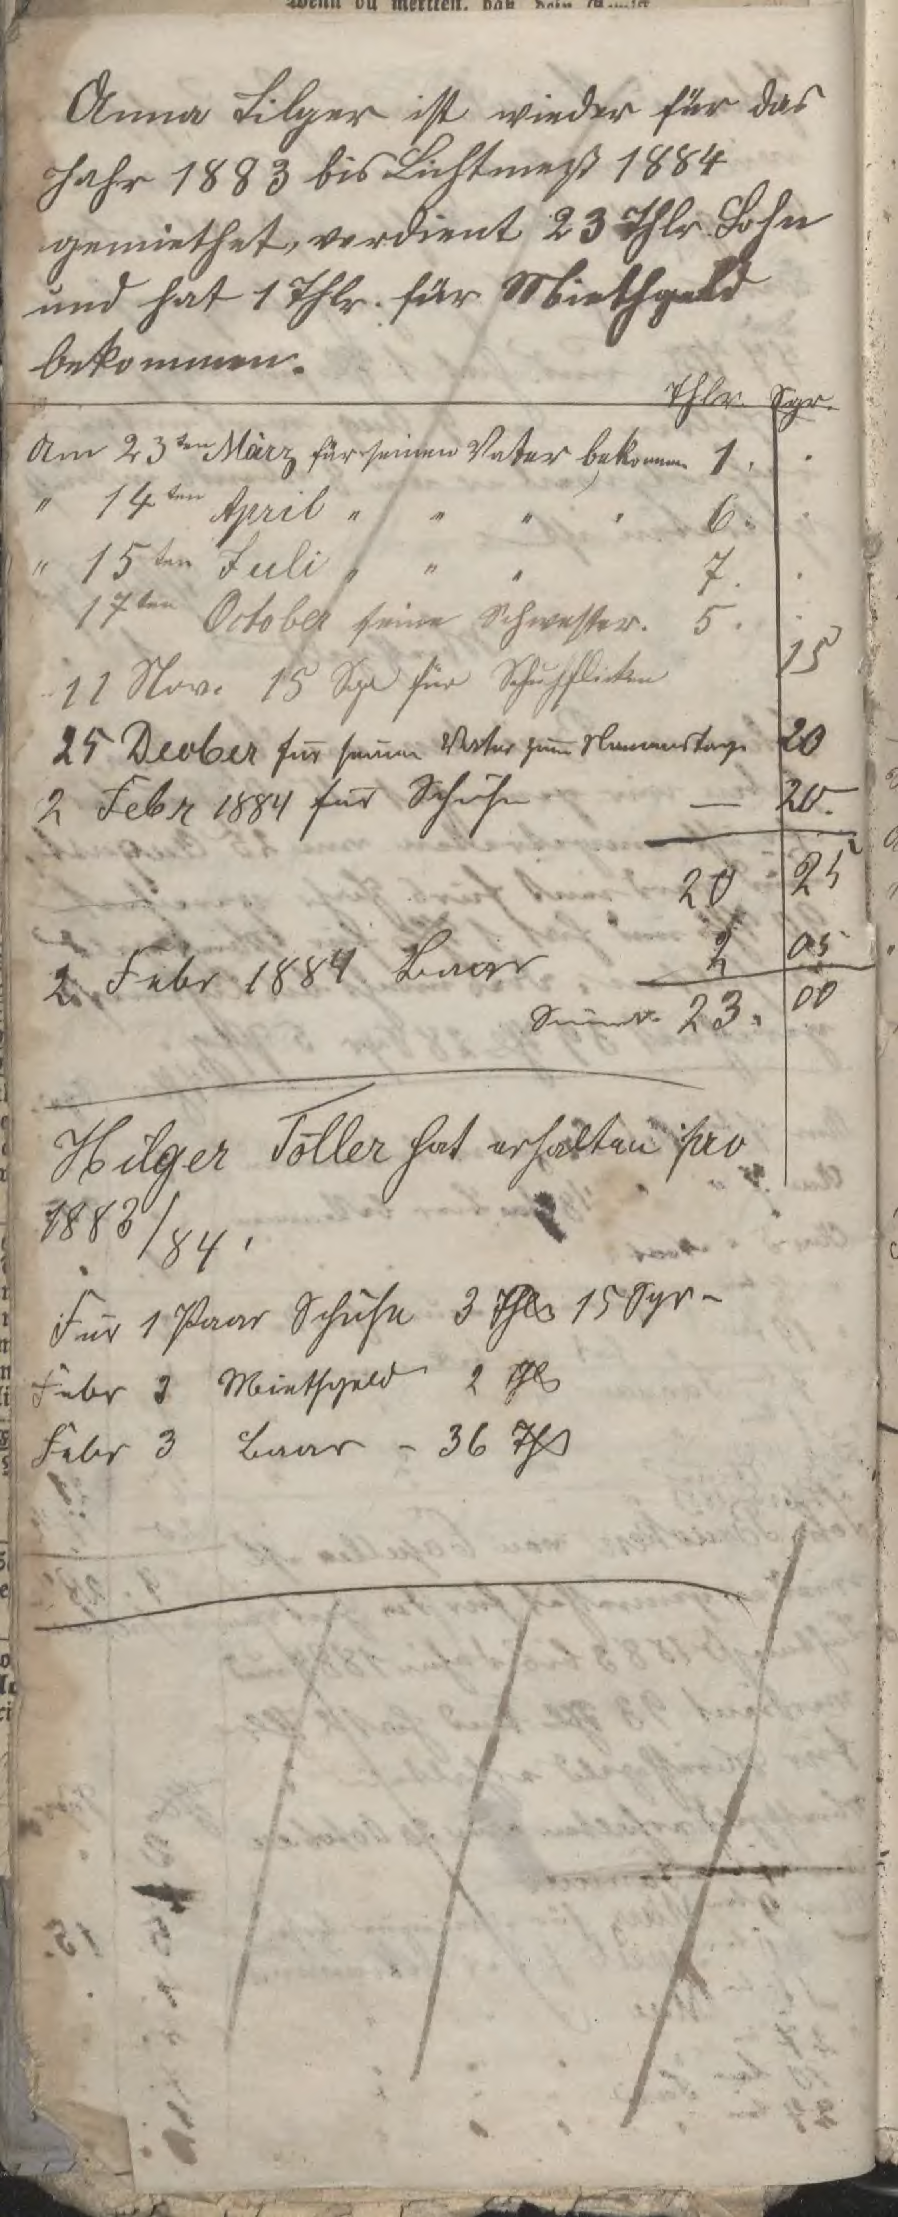 Anna Hilger ist wieder für das
Jahr 1883 bis Lichtmeß 1884
gemiethet, verdient 23 Thlr. Lohn
und hat 1 Thlr. für Miethgeld
bekommen.
Thlr. Sgr.
Am 23ten März für seinen Vater bekommen 1. .
" 14ten April " " " " 6. .
" 15ten Juli " " " 7. .
17ten October seine Schwester. 5. .
11 Nov. 15 Sgr für Schuhflicken 15
25 Decber für seinen Vater zum Namenstage 20
2 Febr 1884 für Schuhe — 20.
20 25
2 Febr 1884 Baar 2 05
Summa 23. 00
Hilger Töller hat erhalten pro
1883/84.
Für 1 Paar Schuhe 3 Thlr 15 Sgr -
Febr 3 Miethgeld 2 Thlr
Febr 3 Baar - 36 Thlr